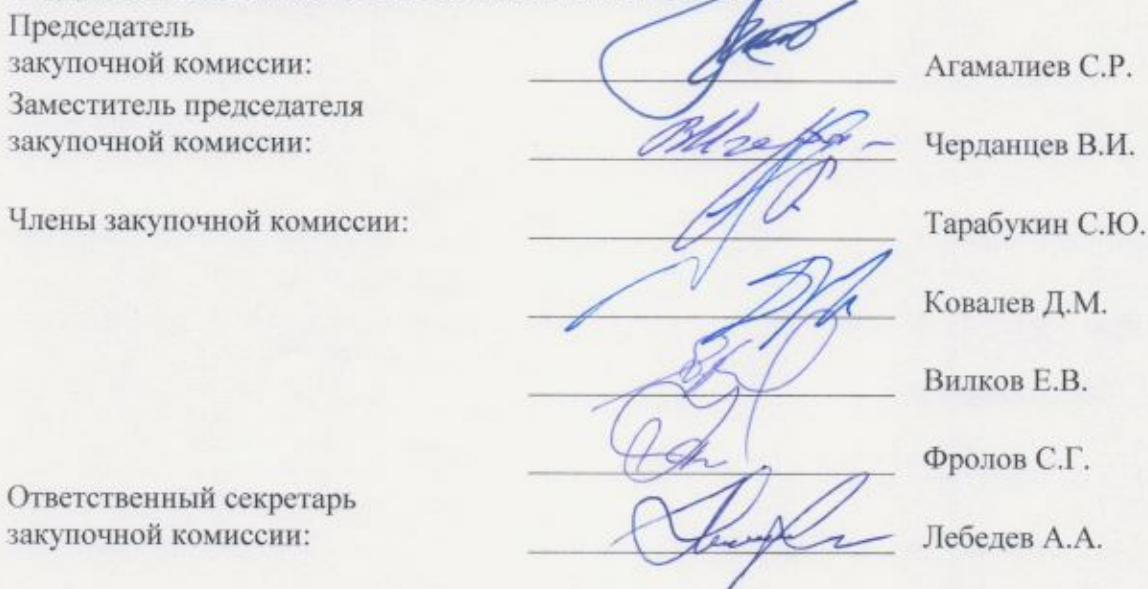 Председатель
закупочной комиссии: Агамалиев С.Р.
Заместитель председателя
закупочной комиссии: Черданцев В.И.
Члены закупочной комиссии: Тарабукин С.Ю.
Ковалев Д.М.
Вилков Е.В.
Фролов С.Г.
Ответственный секретарь
закупочной комиссии: Лебедев А.А.